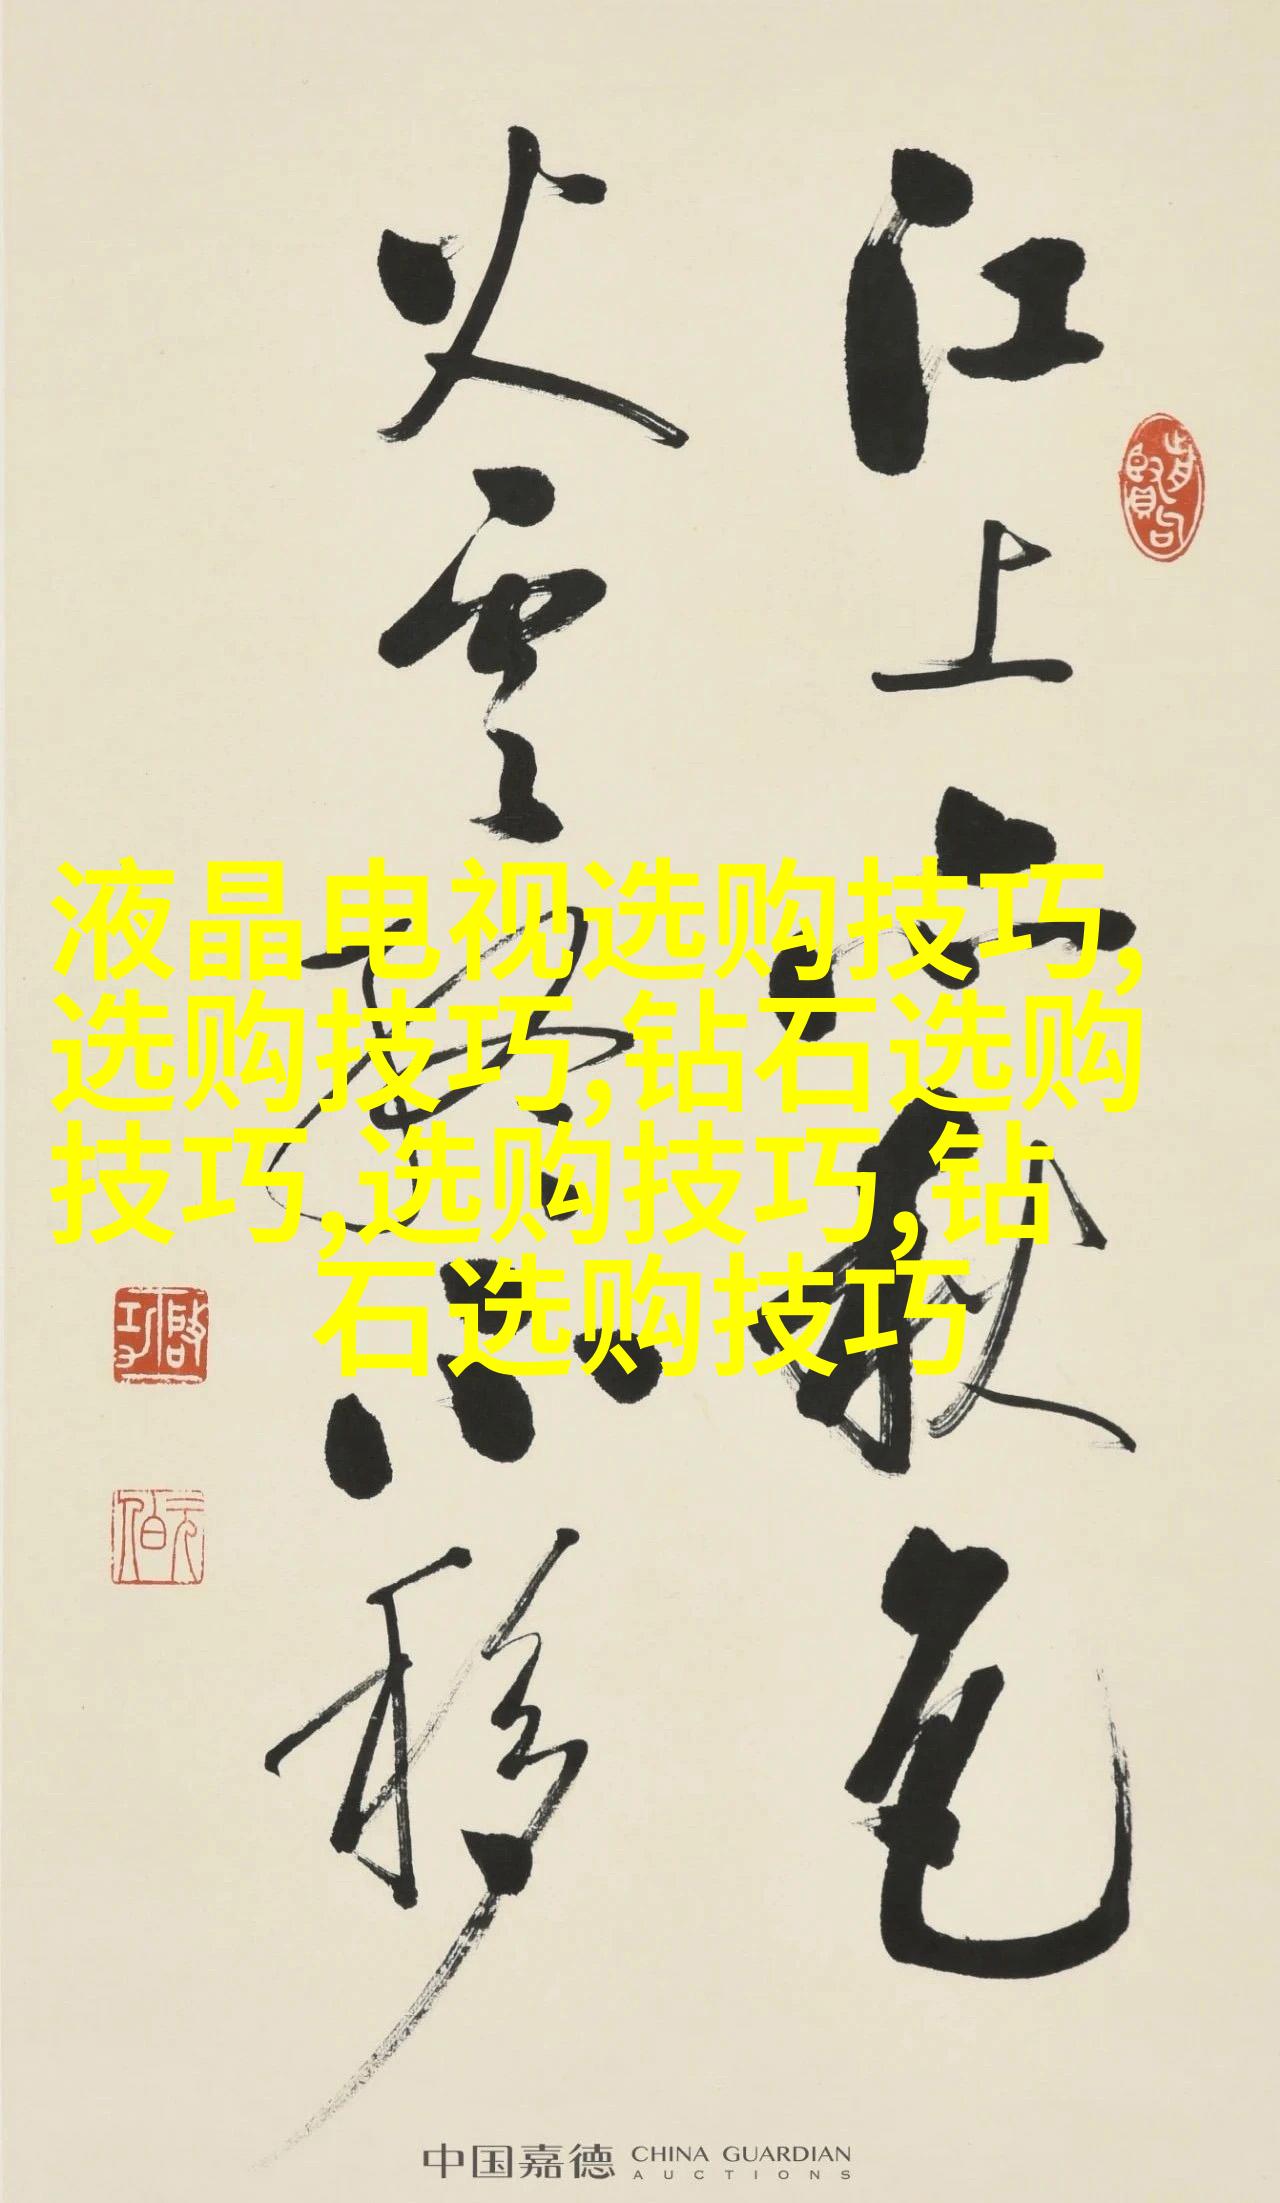 江上亦秋色
火雲終不移
啓功
元伯
液晶电视选购技巧,
选购技巧,钻石选购
技巧,选购技巧,钻
石选购技巧
中国嘉德 CHINA GUARDIAN
AUCTIONS